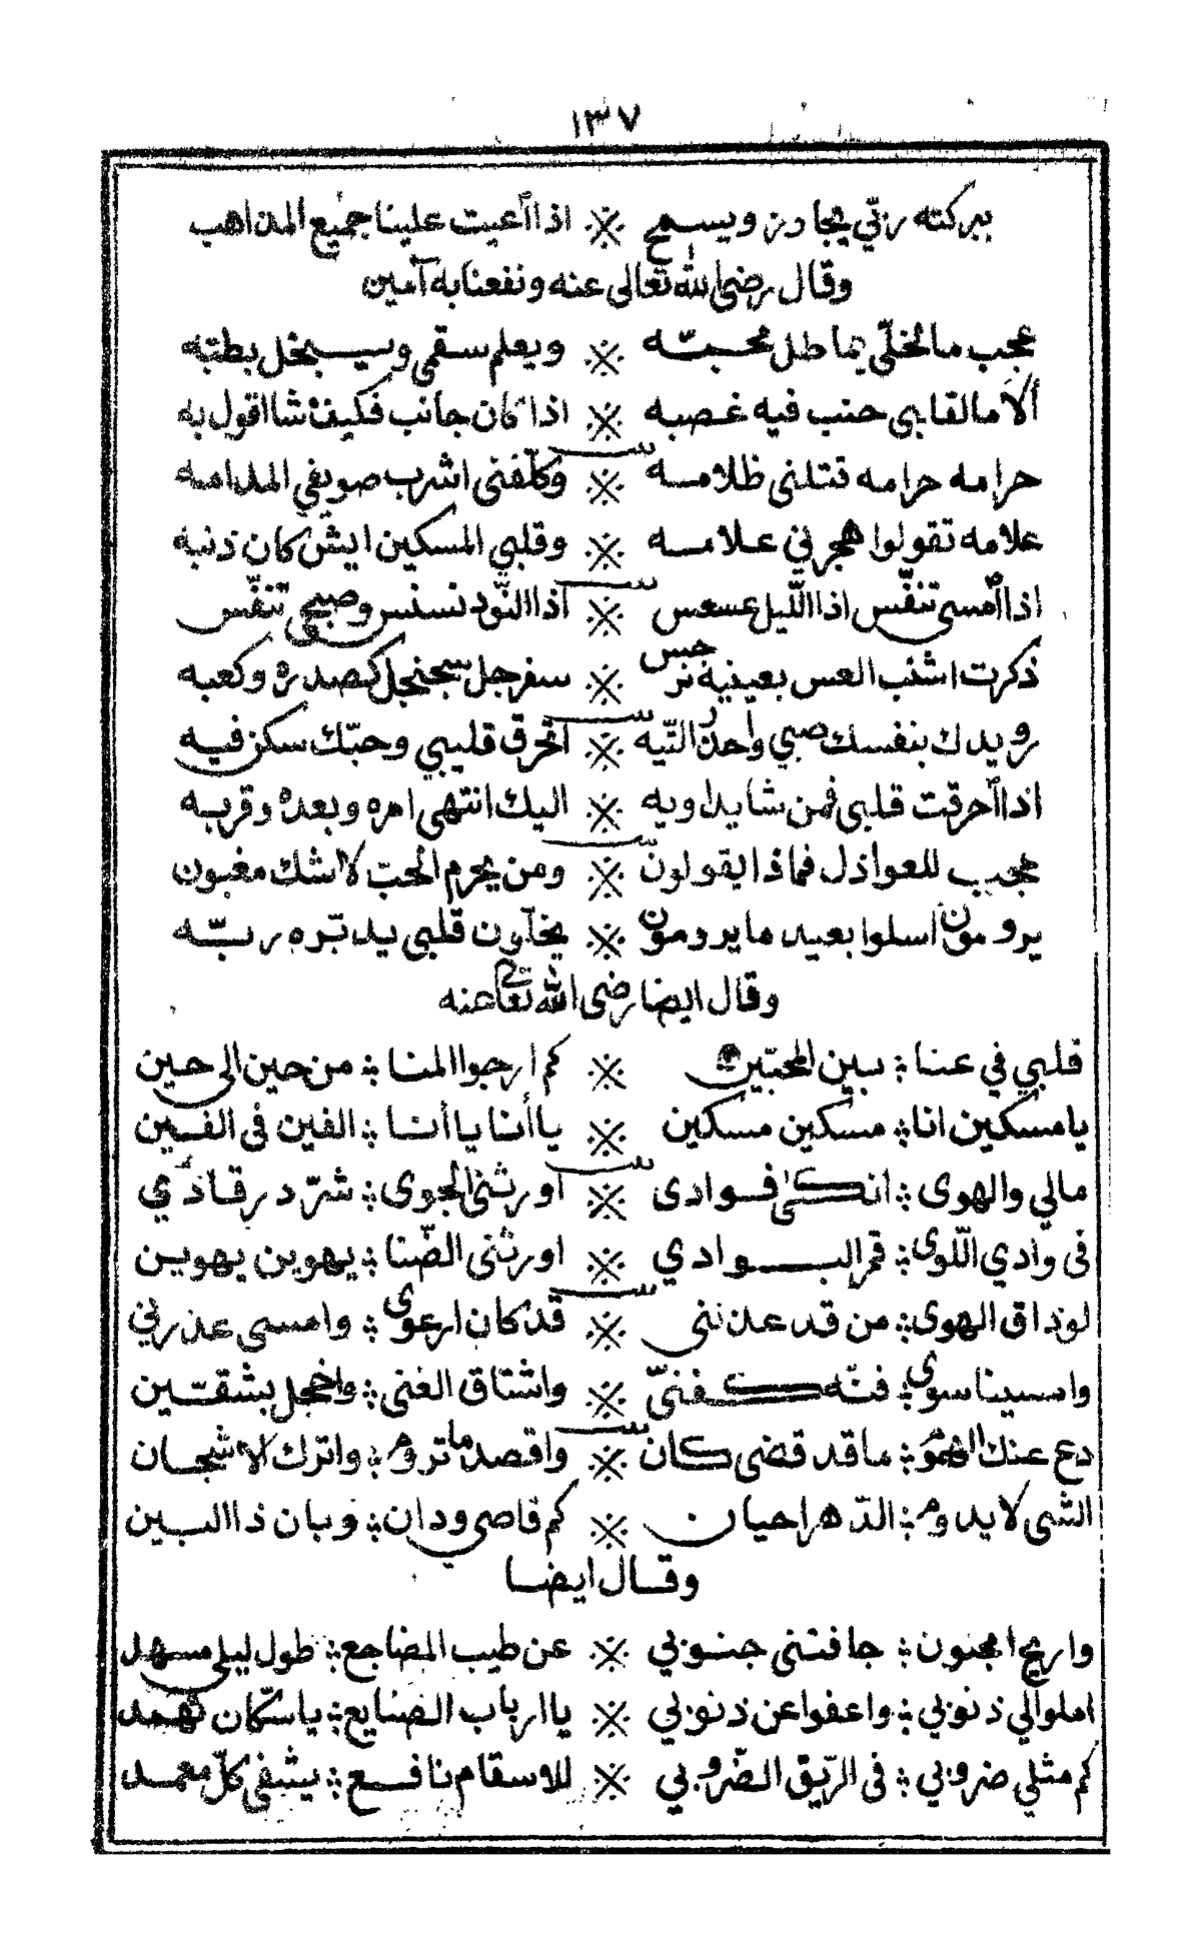 ١٣٧
ببركته ربّي يجاوز ويسمح ※ اذا أعيت علينا جميع المذاهب
وقال رضى الله تعالى عنه ونفعنا به آمين
عجب ما لخلّي بما طل محبّه ※ ويعلم سقمي ويبخل بطبّه
ألا ما لقلبي حنب فيه غصبه ※ اذا كان جانب فكيف شا اقول به
حرامه حرامه قتلني ظلامه ※ وكلّفني اشرب صويفي المدامه
علامه تقولوا هجرني علامه ※ وقلبي المسكين ايش كان ذنبه
اذا أمسى تنفّس اذا اللّيل عسعس ※ اذا النّود نسنس وصبحي تنفّس
ذكرت اشنب العس بعينيه نرجس ※ سفرجل سجنجل كصدره وكعبه
رويدك بنفسك صبي واحذر التّيه ※ اتحرق قليبي وحبّك سكن فيه
اذا أحرقت قلبي فمن شا يداويه ※ اليك انتهى امره وبعده وقربه
عجب للعواذل فماذا يقولونّ ※ ومن يحرم الحبّ لا شك مغبون
يرومون اسلوا بعيد ما يرومون ※ يخلّون قلبي يدبّره ربّه
وقال ايضا رضى الله تعالى عنه
قلبي في عنا ؞ بين المحبّين ※ كم ارجوا المنا ؞ من حين الى حين
يا مسكين انا ؞ مسكين مسكين ※ يا أنا يا أنا ؞ الفين فى الفين
مالي والهوى ؞ انكى فوادى ※ اورثنى الجوى ؞ شرّد رقادي
فى وادي اللّوى ؞ قمر البوادي ※ اورثنى الضّنا ؞ يهوين يهوين
لو ذاق الهوى ؞ من قد عذلنى ※ قد كان ارعوى ؞ وامسى عذرني
واسينا سوى ؞ فنّه كفنىّ ※ واشتاق الغنى ؞ واخجل بشقّين
دع عنك الهموم ؞ ما قد قضى كان ※ واقصد ما تروم ؞ واترك الاشجان
الشى لا يدوم ؞ الدّهر احيان ※ كم قاصى ودان ؞ وبان ذا البين
وقال ايضا
واريح امجنون ؞ جافتنى جنوبي ※ عن طيب المضاجع ؞ طول ليلى مسهد
املوا لي ذنوبي ؞ واعفوا عن ذنوبي ※ يا ارباب الصنايع ؞ يا سكّان ثهمد
كم مثلي ضروبي ؞ فى الرّيق الضّروبي ※ للاسقام نافع ؞ يشفى كلّ معمد